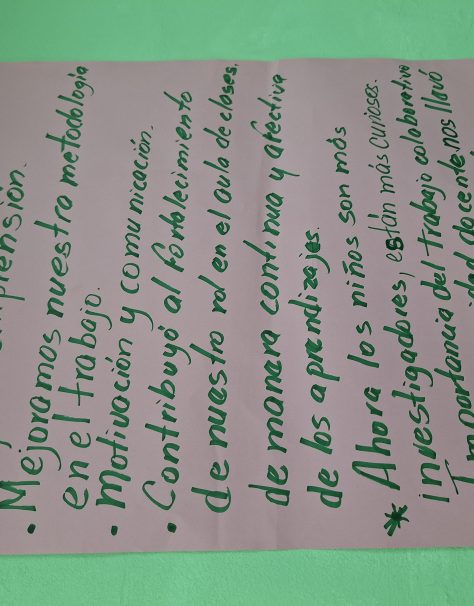 prensión.
• Mejoramos nuestra metodologia
en el trabajo.
• Motivación y comunicación.
• Contribuyó al fortalecimiento
de nuestro rol en el aula de clases.
de manera continua y afectiva
de los aprendizajes.
* Ahora los niños son más
investigadores, están más curiosos.
Importancia del trabajo colaborativo
docente nos llevó